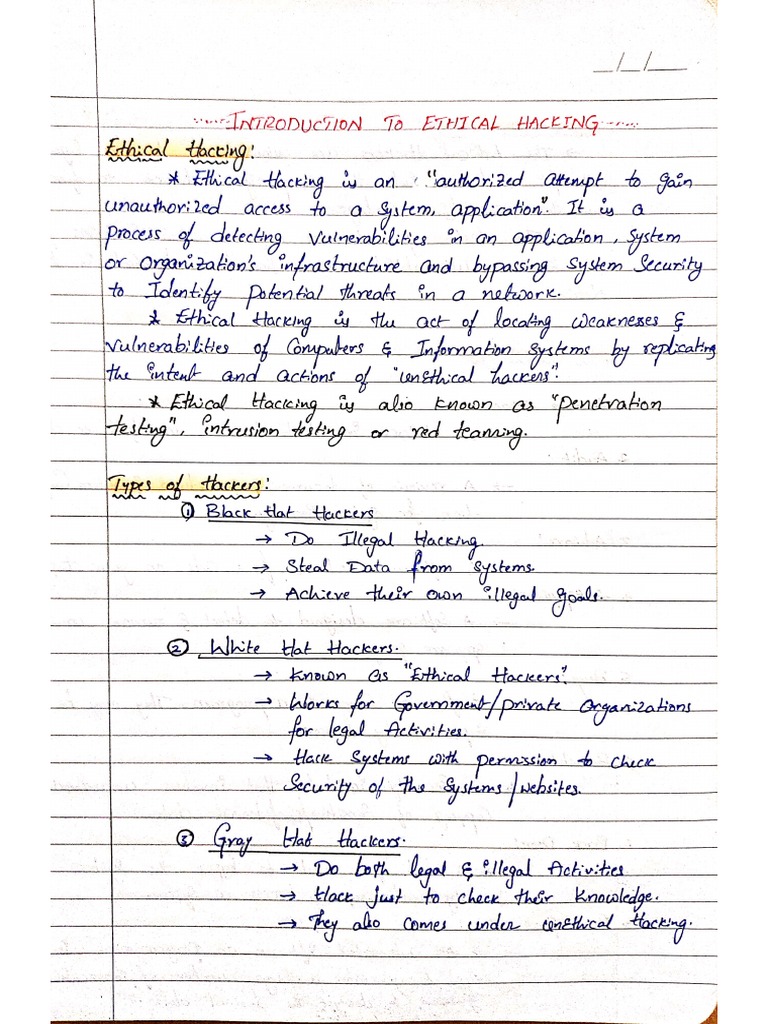 _/_/___
INTRODUCTION TO ETHICAL HACKING
Ethical Hacking:
* Ethical Hacking is an "authorized attempt to gain
unauthorized access to a system, application". It is a
process of detecting vulnerabilities in an application, system
or organization's infrastructure and bypassing system security
to Identify potential threats in a network.
* Ethical Hacking is the act of locating weaknesses &
vulnerabilities of Computers & Information systems by replicating
the intent and actions of "unethical hackers".
* Ethical Hacking is also known as "penetration
testing", intrusion testing or red teaming.
Types of Hackers:
① Black Hat Hackers
→ Do Illegal Hacking.
→ Steal Data from systems.
→ Achieve their own illegal goals.
② White Hat Hackers.
→ Known as "Ethical Hackers".
→ Works for Government/private Organizations
for legal Activities.
→ Hack Systems with permission to check
Security of the Systems/websites.
③ Gray Hat Hackers.
→ Do both legal & illegal Activities
→ Hack just to check their knowledge.
→ They also comes under unethical Hacking.